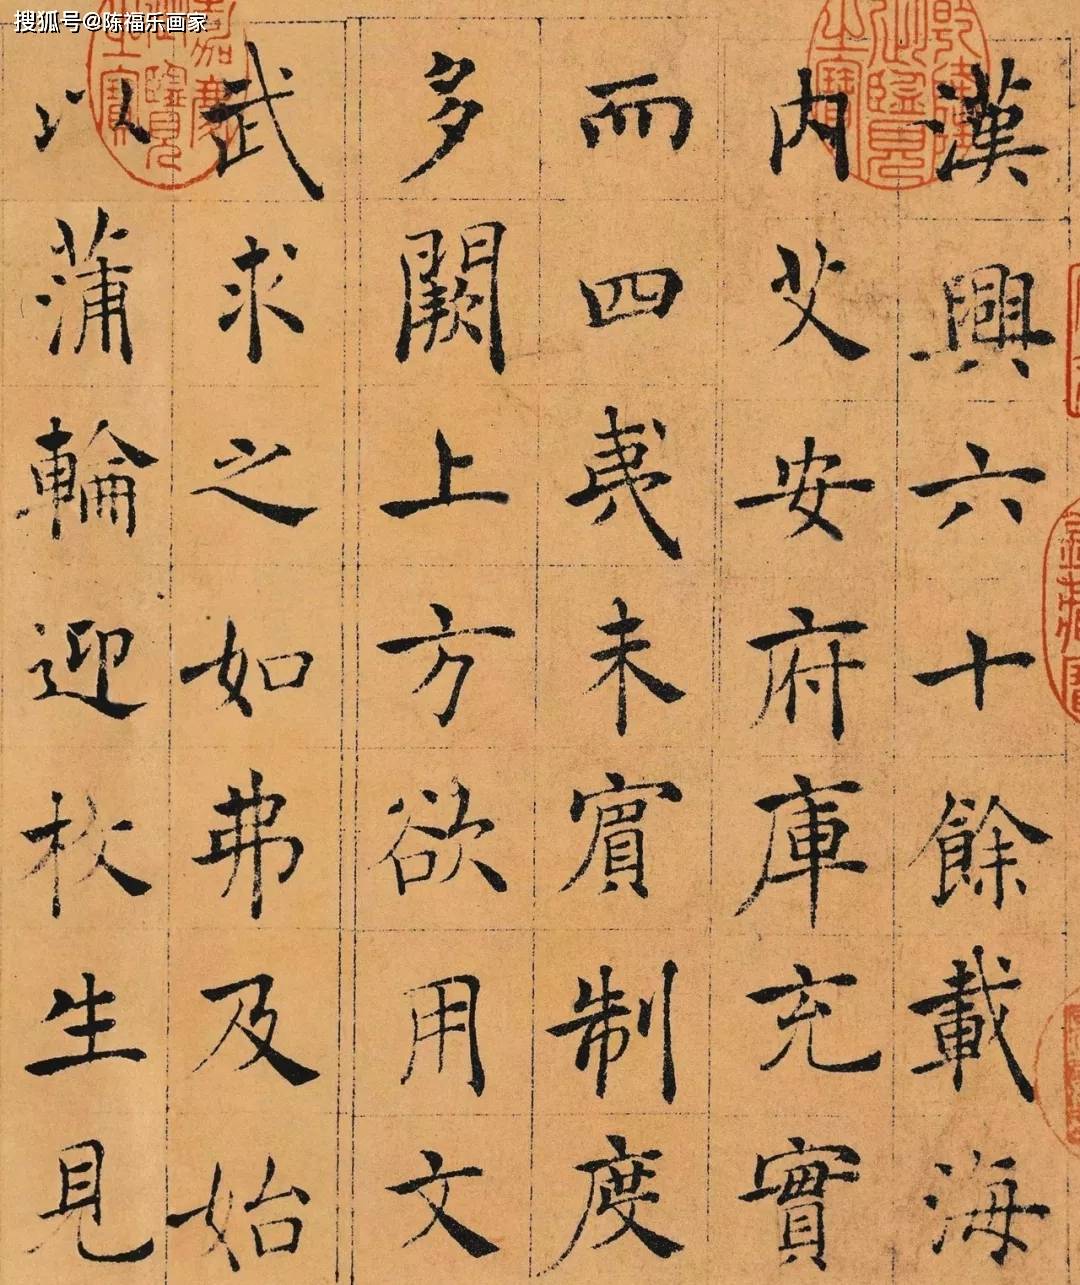 搜狐号@陈福乐画家
漢興六十餘載海
内艾安府庫充實
而四夷未賓制度
多闕上方欲用文
武求之如弗及始
以蒲輪迎枚生見
乾隆御覽之寶
嘉慶御覽之寶